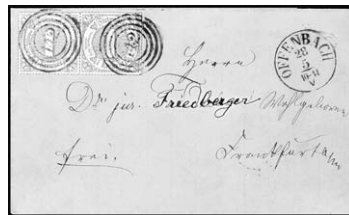 OFFENBACH
28
5
10-11
V
Herrn
Dr. jur. Friedberger Wohlgeboren
frei.
Frankfurt a/m